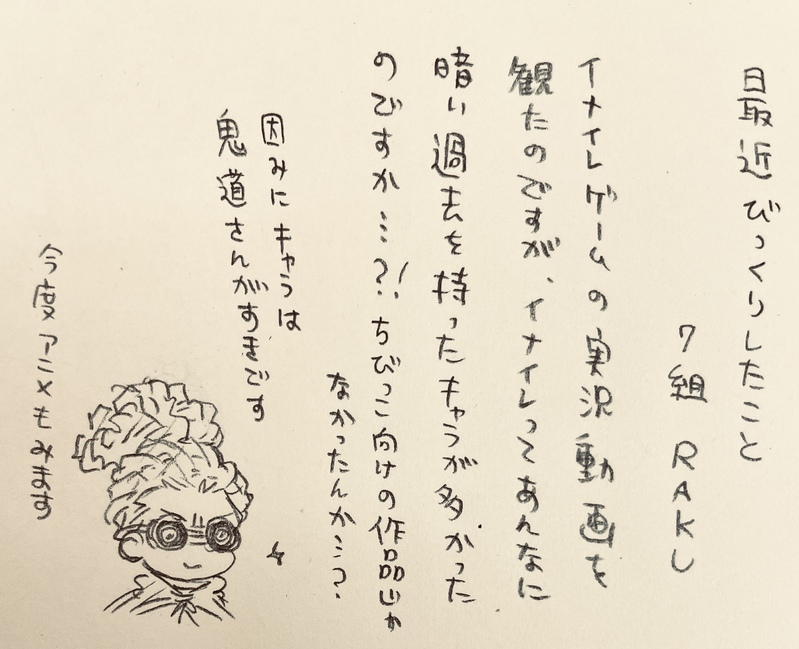 最近びっくりしたこと
7組 RAKU
イナイレゲームの実況動画を
観たのですが、イナイレってあんなに
暗い過去を持ったキャラが多かった
のですか…?! ちびっこ向けの作品じゃ
なかったんか…?
因みにキャラは
鬼道さんがすきです
今度アニメもみます